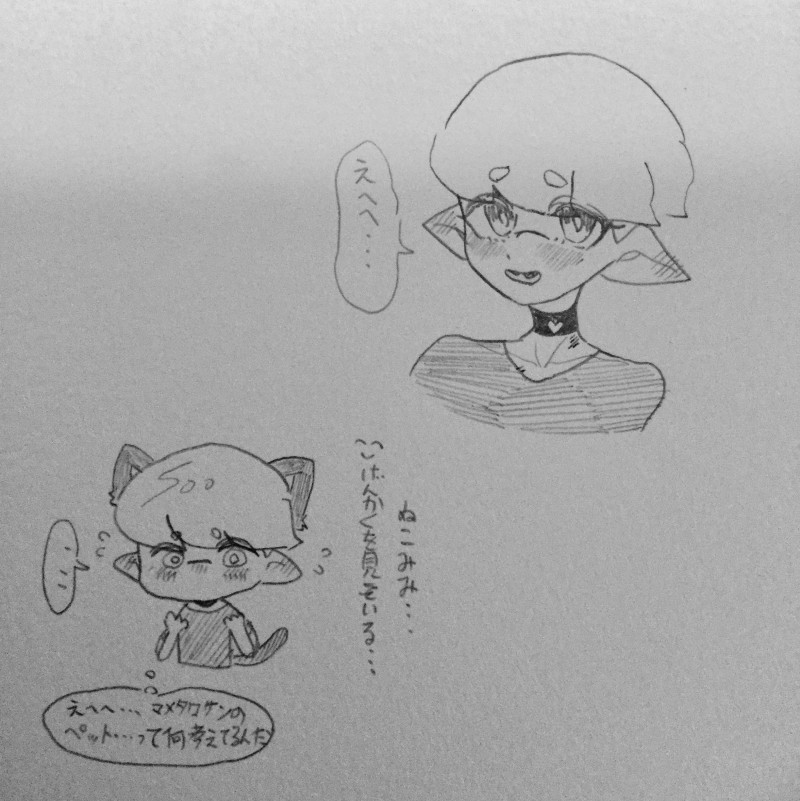 えへへ・・・
ねこみみ・・・
げんかくが見えている・・・
・・・
えへへ・・・、マメタロサンの
ペット・・・って何考えてるんだ